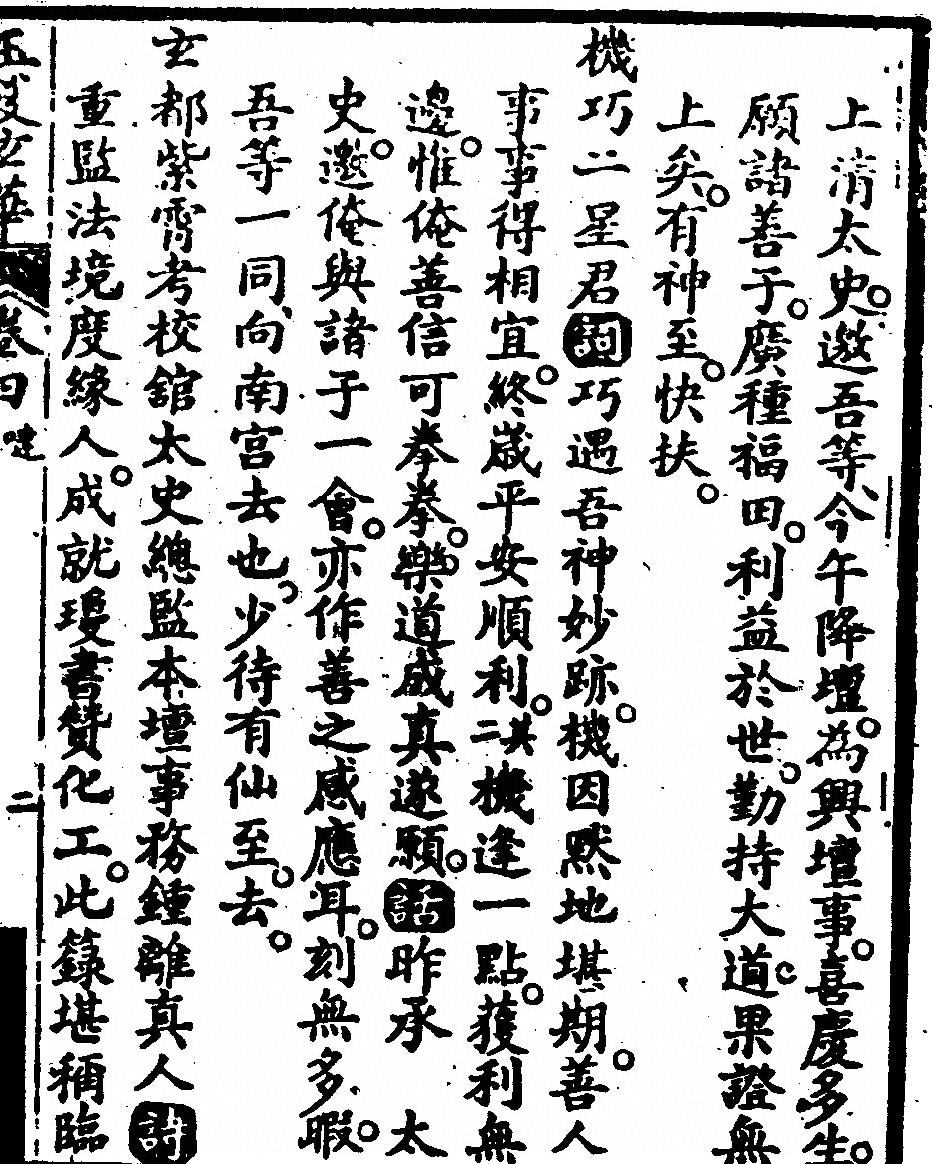 上清太史邀吾等今午降壇為興壇事喜慶多生
願諸善子廣種福田利益於世勤持大道果證無
上矣有神至快扶
機巧二星君詞巧遇吾神妙跡機因默地堪期善人
事事得相宜終歲平安順利其二機逢一點獲利無
邊惟俺善信可拳拳樂道成真遂願話昨承 太
史邀俺與諸子一會亦作善之感應耳刻無多暇
吾等一同向南宮去也少待有仙至去
玄都紫霄考校舘太史總監本壇事務鍾離真人詩
重監法境度緣人成就瓊書贊化工此籙堪稱臨
玄華 卷四 二